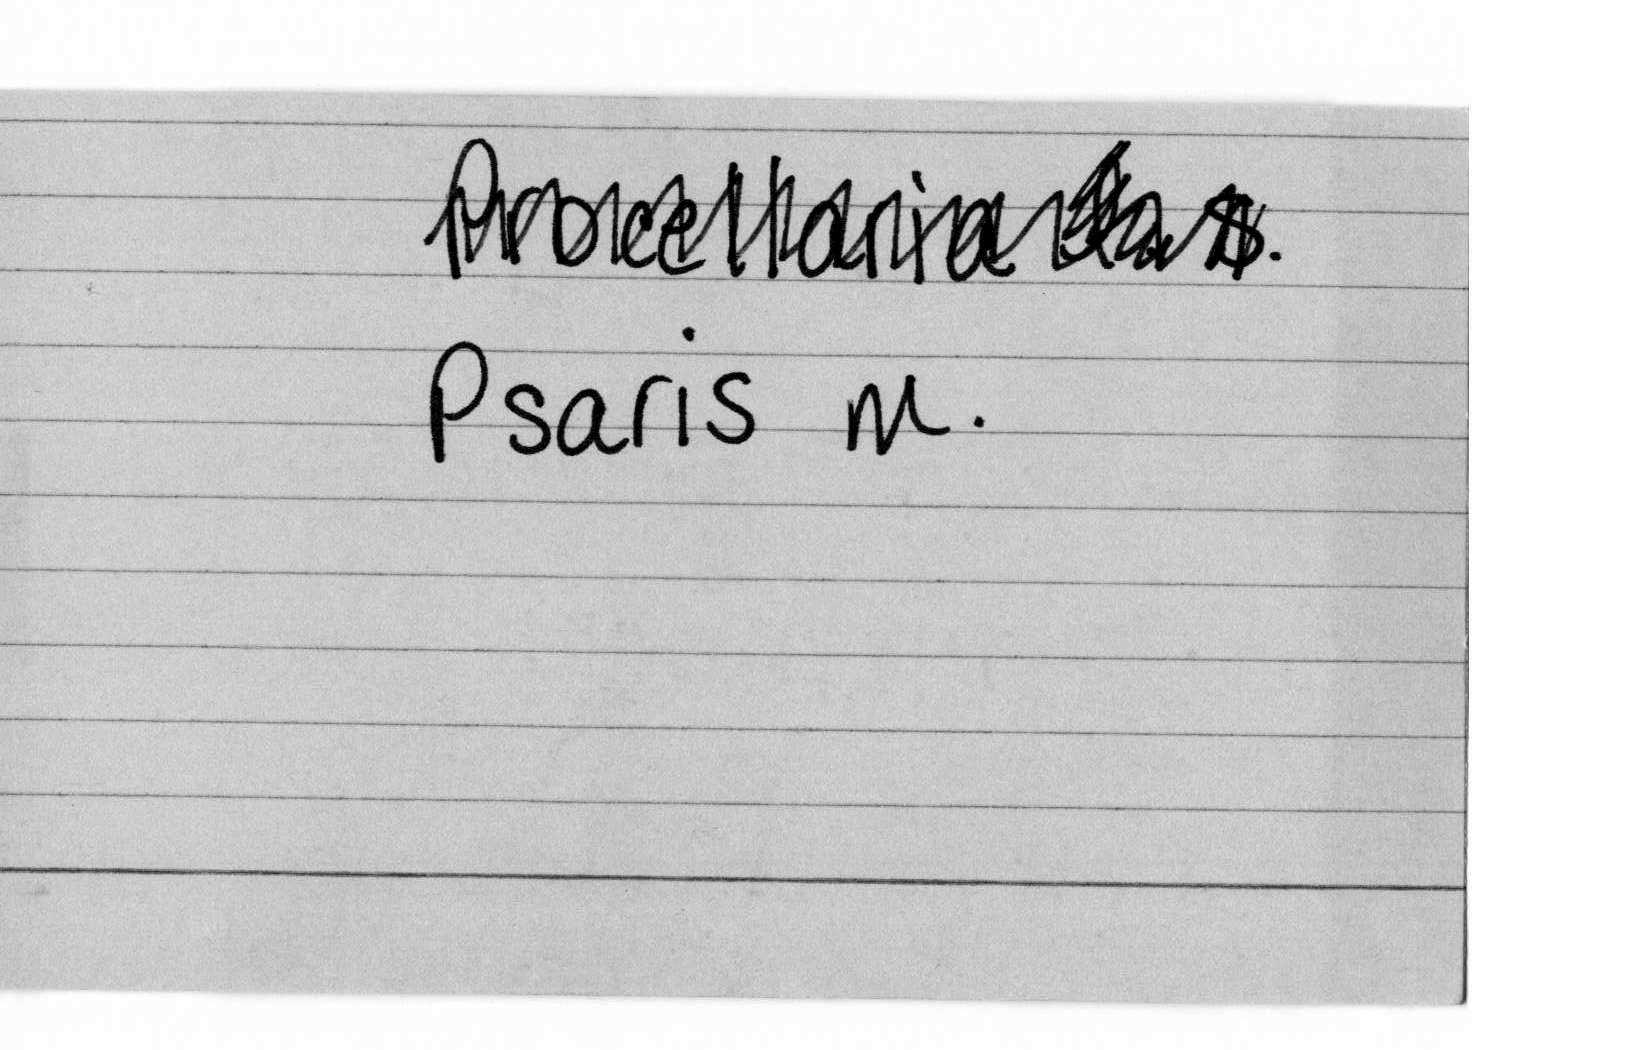 Procellaria
Psaris M.